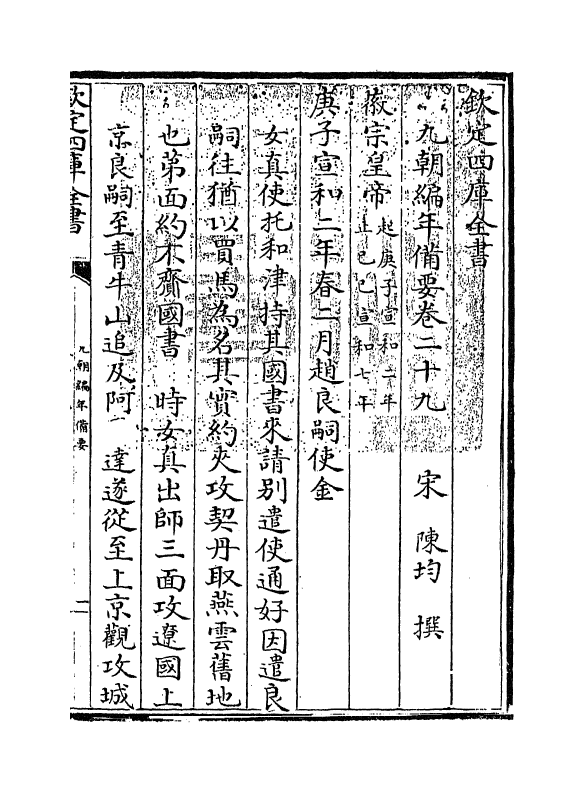 欽定四庫全書
九朝編年備要卷二十九
宋 陳均 撰
徽宗皇帝
起庚子宣和二年
止乙巳宣和七年
庚子宣和二年春二月趙良嗣使金
女真使托和津持其國書來請別遣使通好因遣良
嗣往猶以買馬為名其實約夾攻契丹取燕雲舊地
也第面約不齎國書 時女真出師三面攻遼國上
京良嗣至青牛山追及阿 達遂從至上京觀攻城
欽定四庫全書
九朝編年備要